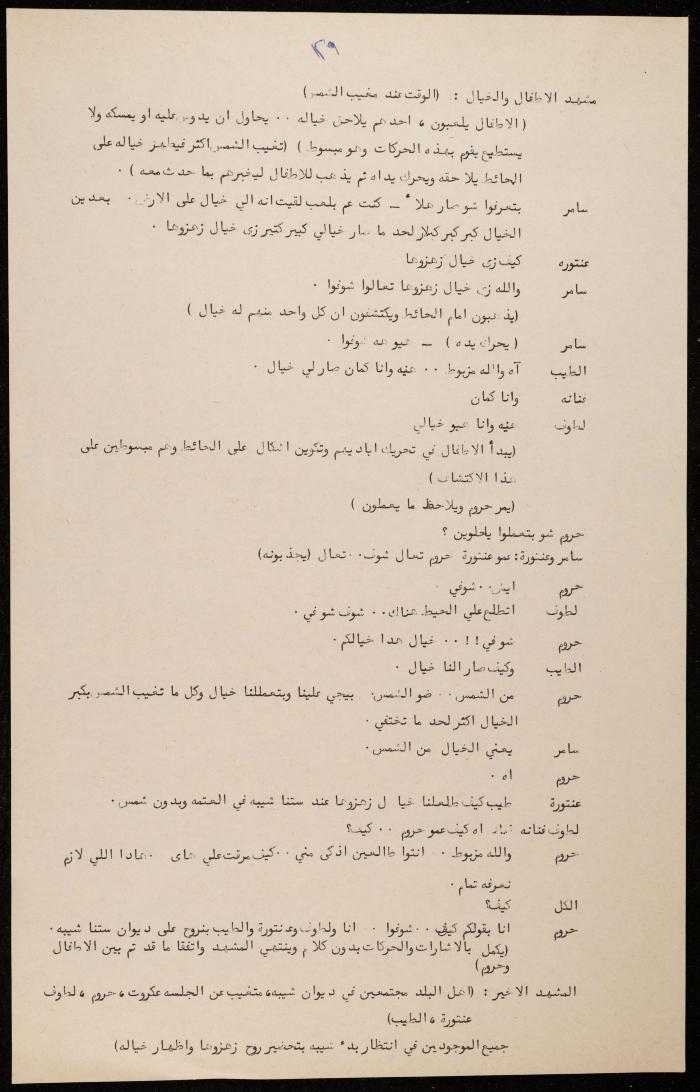 ٣٩
مشهد الاطفال والخيال : (الوقت عند مغيب الشمس)
( الاطفال يلعبون ، احدهم يلاحق خياله ٠٠ يحاول ان يدوس عليه او يمسكه ولا
يستطيع يقوم بهذه الحركات وهو مبسوط ) (تغيب الشمس اكثر فيظهر خياله على
الحائط يلاحقه ويحرك يداه ثم يذهب للاطفال ليخبرهم بما حدث معه ) ٠
سامر بتعرفوا شو صار هلأ ـ كنت عم بلعب لقيت انه الي خيال على الارض ٠ بعدين
الخيال كبر كبر كبلار لحد ما صار خيالي كبير كتير زى خيال زهزوها ٠
عنتوره كيف زى خيال زهزوها
سامر والله زى خيال زهزوها تعالوا شوفوا ٠
(يذهبون امام الحائط ويكتشفون ان كل واحد منهم له خيال )
سامر ( يحرك يده ) ـ هيو هه شوفوا ٠
الطيب آه والله مزبوط ٠٠ هيه وانا كمان صار لي خيال ٠
فنانه وانا كمان
لطوف هيه وانا هيو خيالي
(يبدأ الاطفال في تحريك اياديهم وتكوين اشكال على الحائط وهم مبسوطين على
هذا الاكتشاف )
(يمر حروم ويلاحظ ما يعملون )
حروم شو بتعملوا ياحلوين ؟
سامر وعنتورة: عمو عنتورة حروم تعال شوف ٠٠ تعال (يجذبونه)
حروم ايش ٠٠ شوفي
لطوف اتطلع علي الحيط هناك ٠٠ شوف شو في ٠
حروم شو في !! ٠٠ خيال هدا خيالكم ٠
الطيب وكيف صار النا خيال ٠
حروم من الشمس ٠٠ ضو الشمس ٠ بييجي علينا وبتعمللنا خيال وكل ما تغيب الشمس بكبر
الخيال اكثر لحد ما تختفي ٠
سامر يعني الخيال من الشمس ٠
حروم اه ٠
عنتورة طيب كيف طلعلنا خيا ل زهزوها عند ستنا شيبه في العتمه وبدون شمس ٠
لطوف فنانه اه كيف عمو حروم ٠٠ كيف؟
حروم والله مزبوط ٠٠ انتوا طالعين اذكى مني ٠٠ كيف مرقت علي هاى ٠ هادا اللي لازم
نعرفه تمام ٠
الكل كيف؟
حروم انا بقولكم كيف ٠٠ شوفوا ٠٠ انا ولطوف وعنتورة والطيب بنروح على ديوان ستنا شيبه ٠
(يكمل بالاشارات والحركات بدون كلام وينتهي المشهد واتفقا ما قد تم بين الاطفال
وحروم)
المشهد الاخير : (اهل البلد مجتمعين في ديوان شيبه، متغيب عن الجلسه عكروت ، حروم ، لطوف
عنتورة ، الطيب)
جميع الموجودين في انتظار بدء شيبه بتحضير روح زهزوها واظهار خياله)